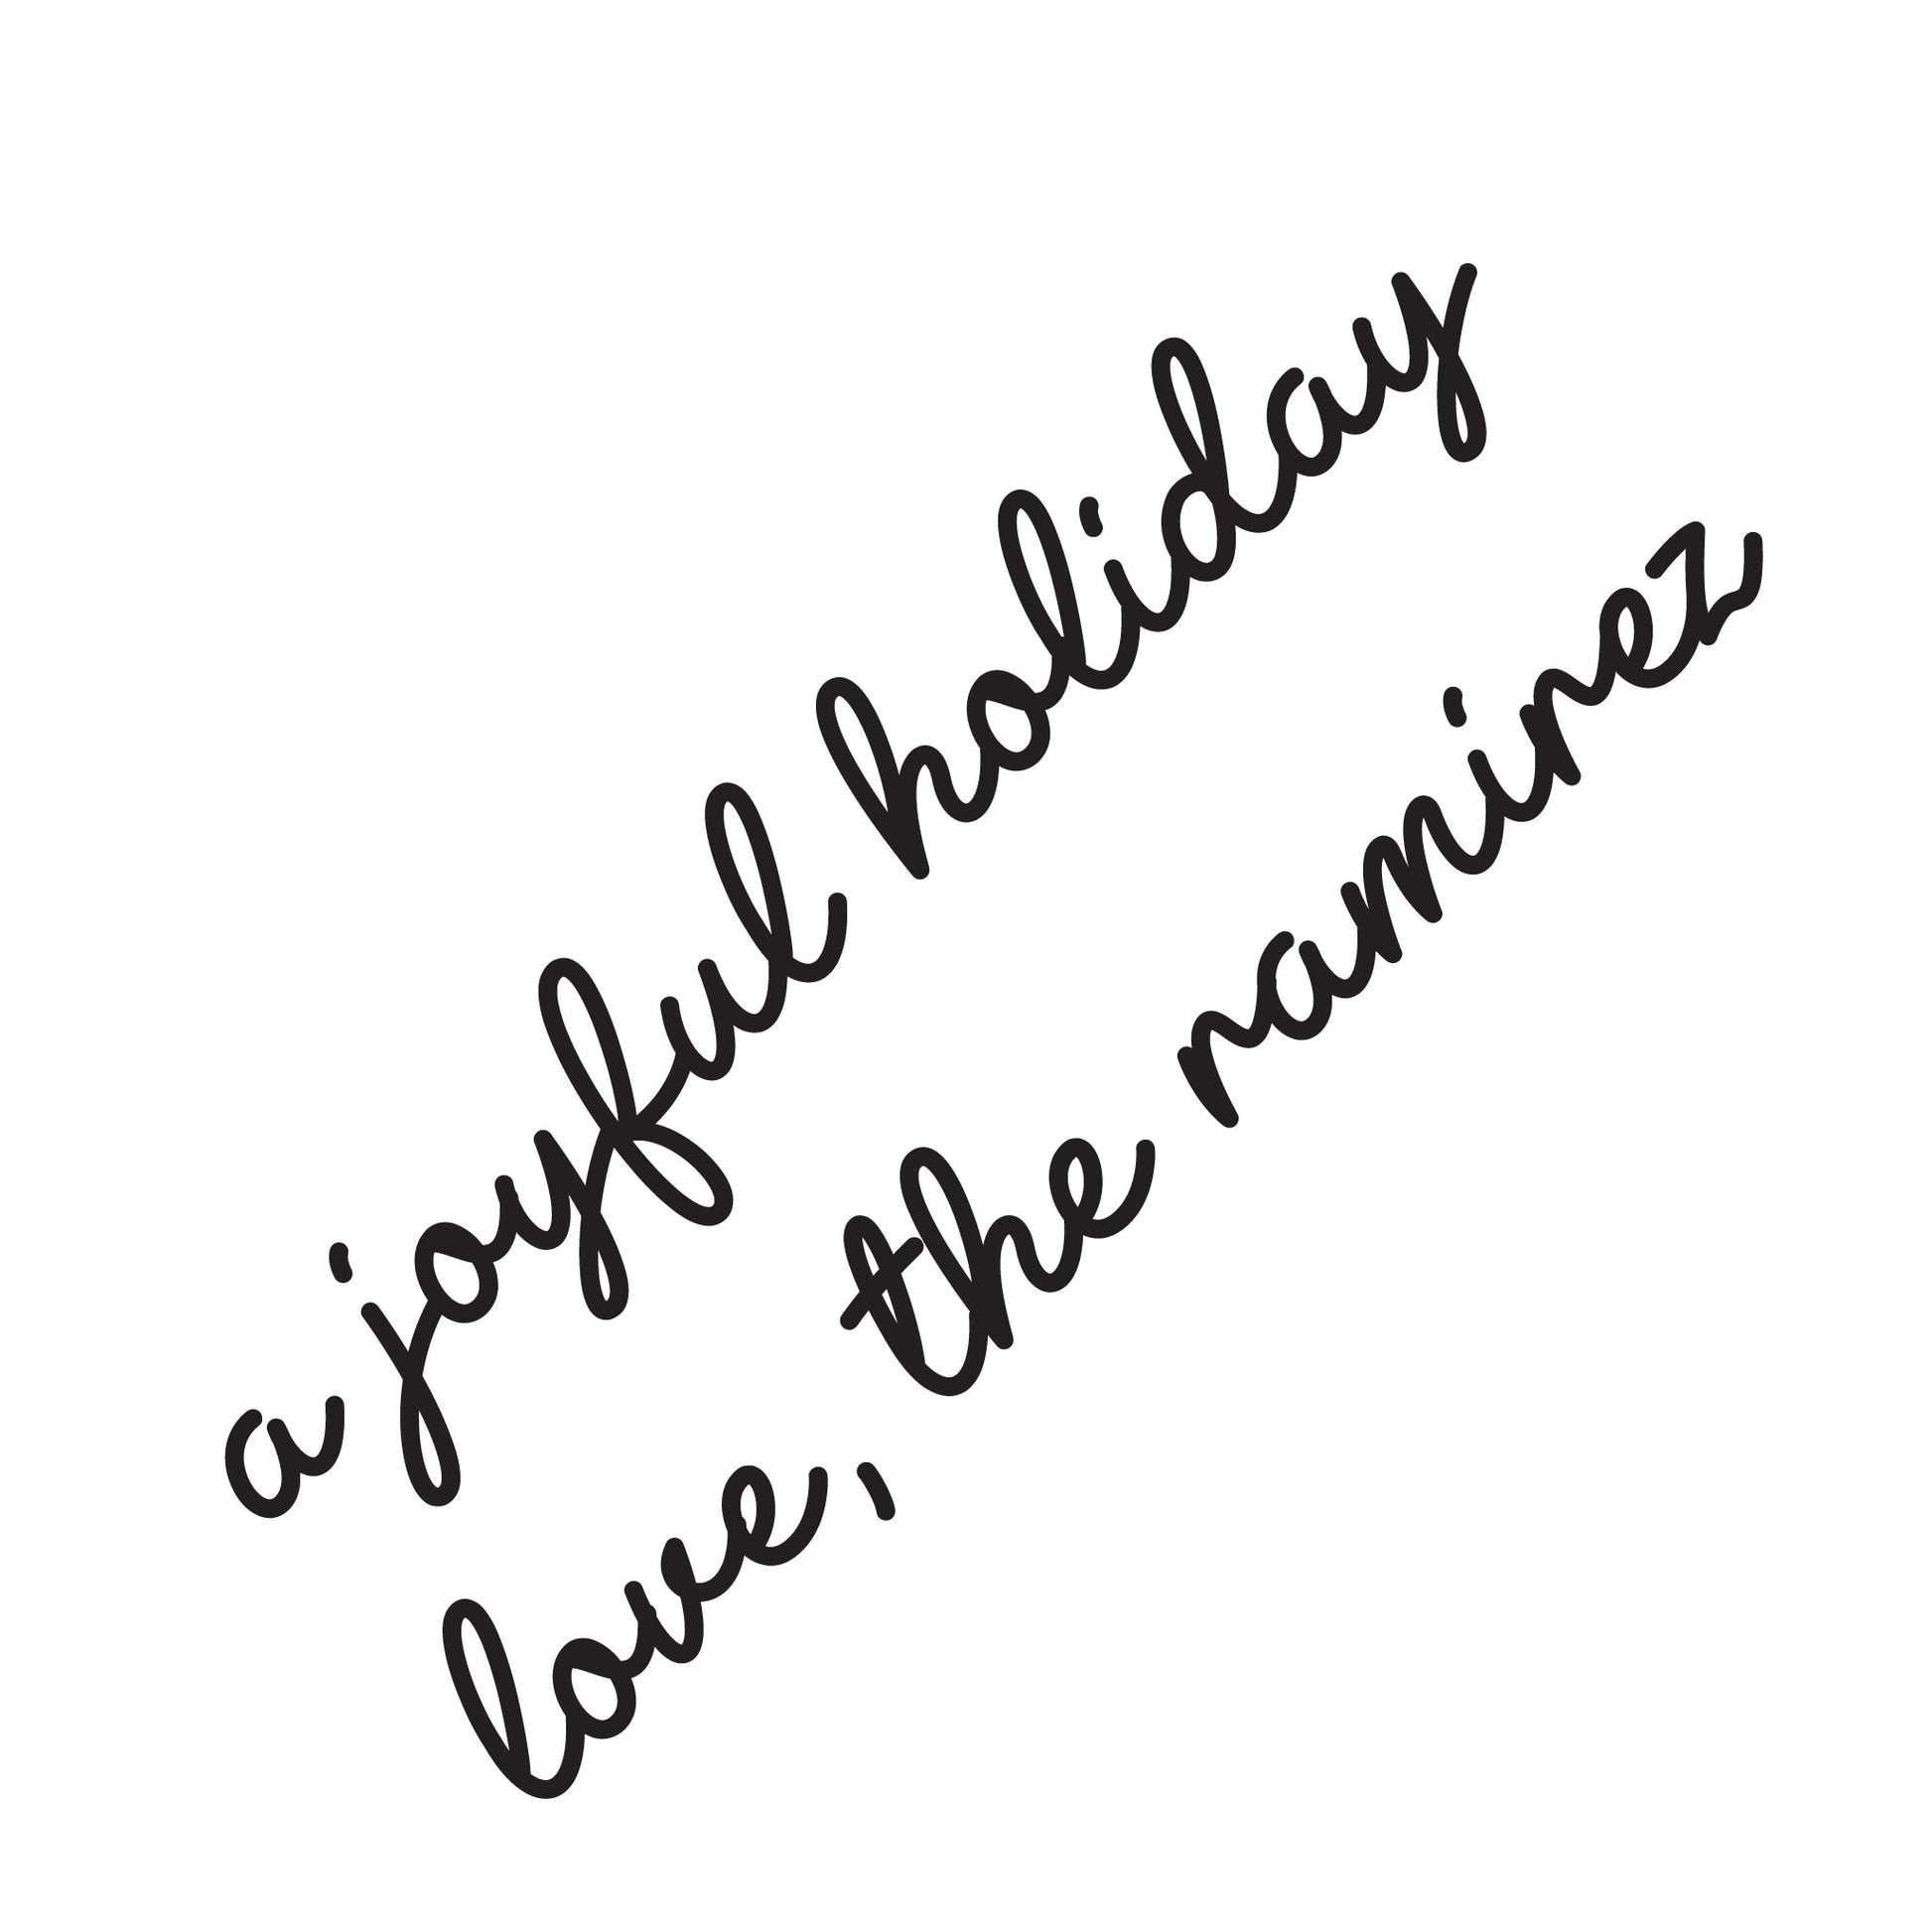 a joyful holiday
love, the ramirez